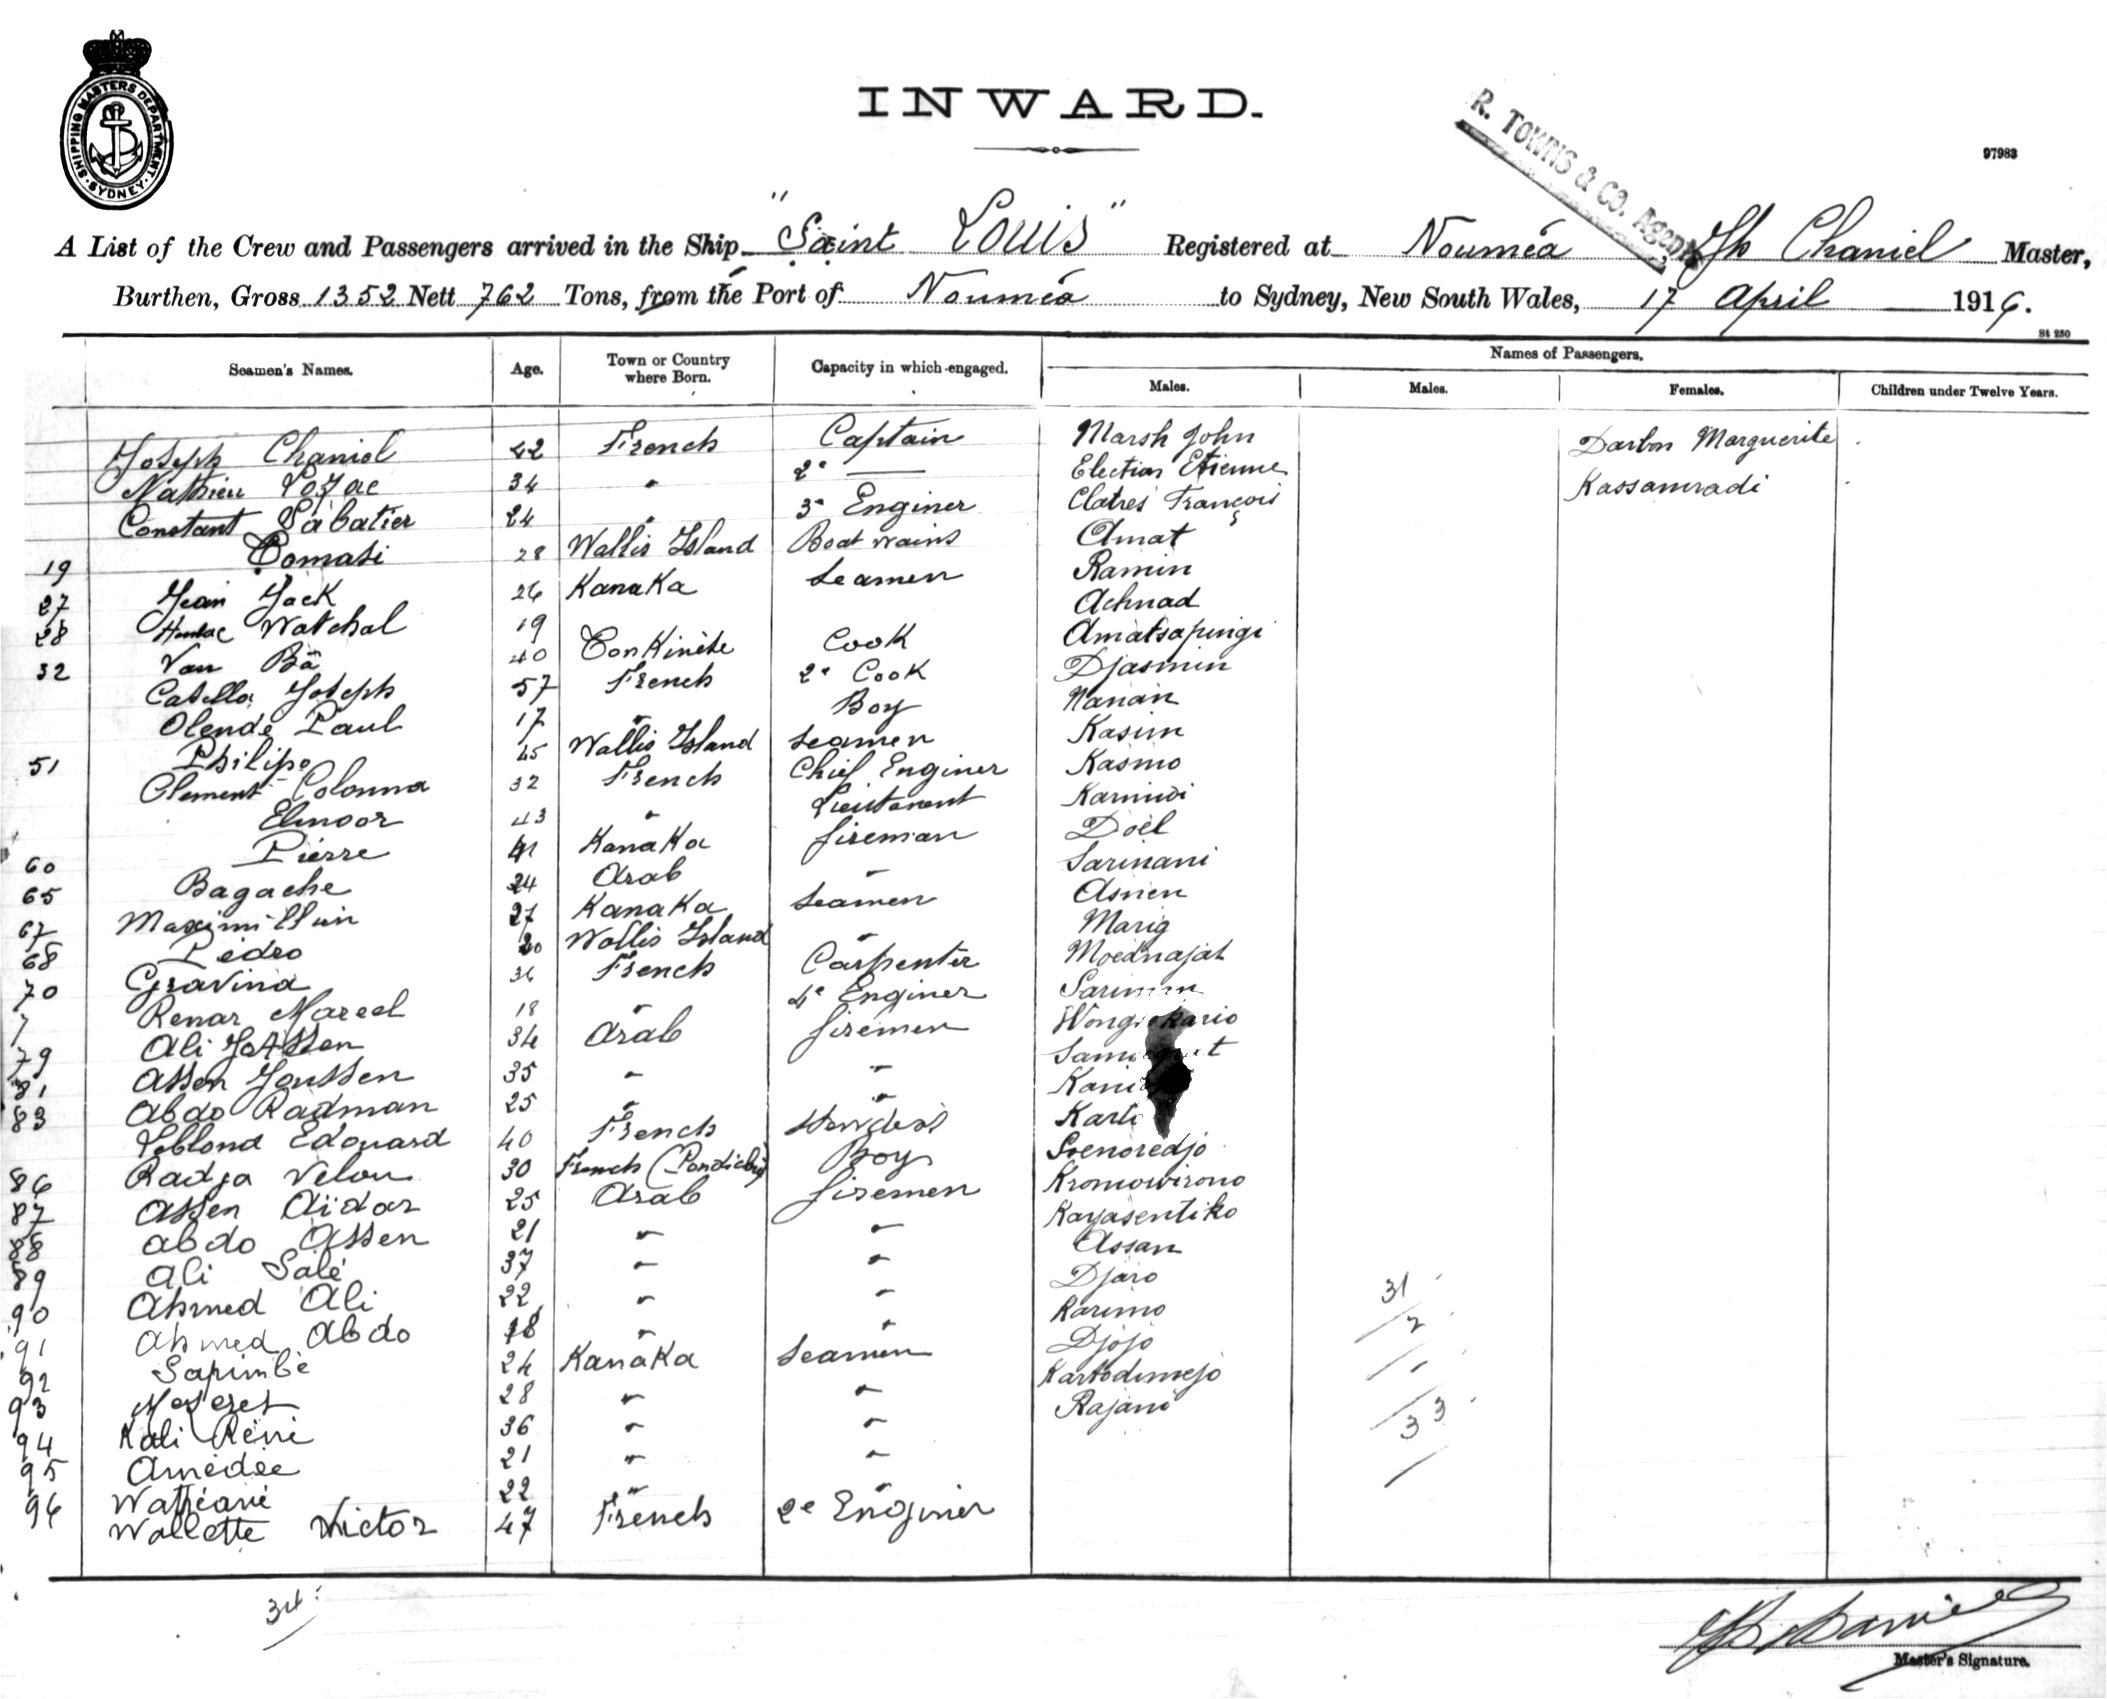 SHIPPING MASTERS DEPARTMENT · SYDNEY ·
INWARD.
R. TOWNS & CO. Agents
97983
A List of the Crew and Passengers arrived in the Ship "Saint Louis" Registered at Nouméa Jh Chaniel Master,
Burthen, Gross 1352 Nett 762 Tons, from the Port of Nouméa to Sydney, New South Wales, 17 April 1916.
St 250
Seamen's Names. Age. Town or Country where Born. Capacity in which engaged. Names of Passengers.
Males. Males. Females. Children under Twelve Years.
Joseph Chaniel 42 French Captain Marsh John Darbon Marguerite
Mathieu 34 " 2e —— Election Etienne Kassamradi
Constant Sabatier 24 " 3e Enginer Clatres François
19 Tomasi 28 Wallis Island Boat wains Amat
27 Jean Jack 26 Kanaka Seamen Ramin
28 Watchal 19 Achmad
32 Van Bâ 40 Tonkinese Cook Amatsapingi
Casella Joseph 57 French 2e Cook Djasmin
Olende Paul 17 " Boy Nanan
51 Philipo 45 Wallis Island Seamen Kasim
Clement Colonna 32 French Chief Enginer Kasmo
Elmoor 43 " Lieutenent Karmidi
60 Pierre 41 Kanaka fireman Doel
65 Bagache 24 Arab " Sarinani
67 Maximillien 27 Kanaka Seamen Asnen
68 Pedro 20 Wallis Island " Marig
70 Gravina 36 French Carpenter Moednajat
7 Renar Marcel 18 " 4e Enginer
79 Ali Jassen 34 Arab firemen
81 Assen Joussen 35 " "
83 Abdo Radman 25 " "
Leblond Edouard 40 French Soenoredjo
86 Radja Velou 30 French Boy Kromowirono
87 Assen Aïdar 25 Arab firemen Kayasentiko
88 Abdo Assen 21 " " Assan
89 Ali Salé 37 " " Djaro
90 Ahmed Ali 22 " " Karimo
91 Ahmed Abdo 18 " " Djojo
92 Sapimbè 24 Kanaka Seamen Kartodimejo
93 Meseret 28 " " Rajani
94 Kali Réné 36 " "
95 Amédée 21 " "
96 22 " "
Wallette Victor 47 French 2e Enginer
31
2
33
34
Master's Signature.